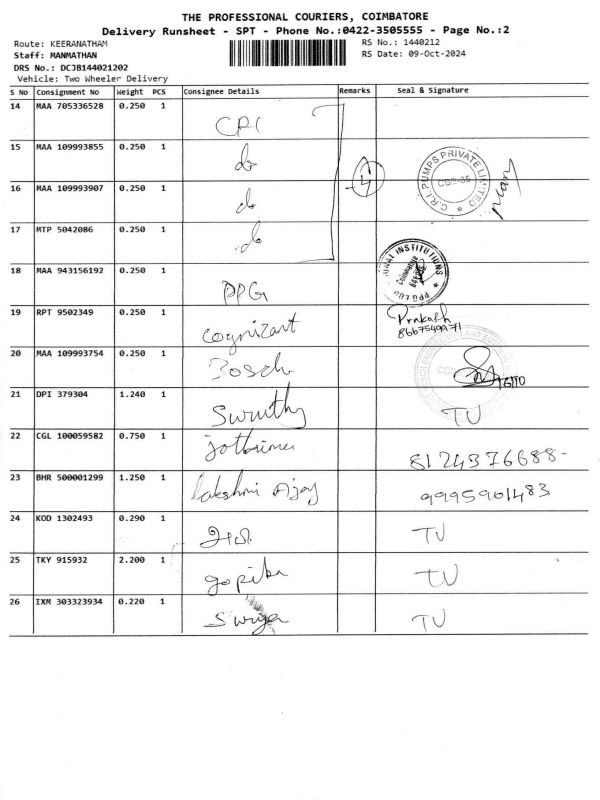 THE PROFESSIONAL COURIERS, COIMBATORE
Delivery Runsheet - SPT - Phone No.:0422-3505555 - Page No.:2
Route: KEERANATHAM
RS No.: 1440212
Staff: MANMATHAN
RS Date: 09-Oct-2024
DRS No.: DCJB144021202
Vehicle: Two Wheeler Delivery
S No Consignment No Weight PCS Consignee Details Remarks Seal & Signature
14 MAA 705336528 0.250 1 CPI
15 MAA 109993855 0.250 1 do
C.R.I. PUMPS PRIVATE LIMITED
16 MAA 109993907 0.250 1 do 4
17 MTP 5042086 0.250 1 do
18 MAA 943156192 0.250 1 PPG
Coimbatore
19 RPT 9502349 0.250 1 cognizant Prakash
20 MAA 109993754 0.250 1 Bosch
21 DPI 379304 1.240 1 Swruthy TU
22 CGL 100059582 0.750 1 8124376688-
23 BHR 500001299 1.250 1 lakshmi Ajay 9995901483
24 KOD 1302493 0.290 1 TU
25 TKY 915932 2.200 1 gopika TU
26 IXM 303323934 0.220 1 Surya TU